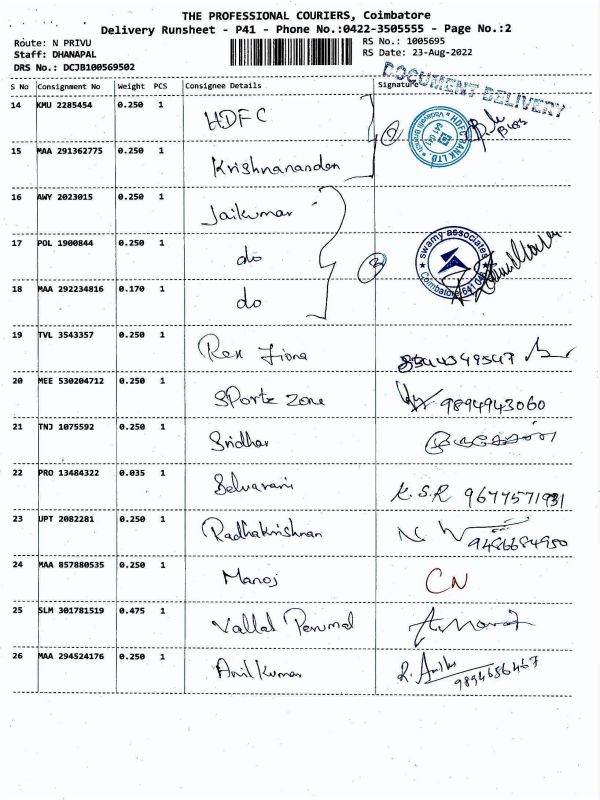 THE PROFESSIONAL COURIERS, Coimbatore
Delivery Runsheet - P41 - Phone No.:0422-3505555 - Page No.:2
Route: N PRIVU
RS No.: 1005695
Staff: DHANAPAL
RS Date: 23-Aug-2022
DRS No.: DCJB100569502
S No Consignment No Weight PCS Consignee Details Signature
DOCUMENT DELIVERY
14 KMU 2285454 0.250 1 HDFC
HDFC BANK LTD
15 MAA 291362775 0.250 1 Krishnanandan
16 AWY 2023015 0.250 1 Jaikumar
17 POL 1900844 0.250 1 do
swamy associates
Coimbatore
18 MAA 292234816 0.170 1 do
19 TVL 3543357 0.250 1 Rex Fiona
20 MEE 530204712 0.250 1 Sports zone 9894943060
21 TNJ 1075592 0.250 1 Sridhar
22 PRO 13484322 0.035 1 Selvarani K.S.R
23 UPT 2082281 0.250 1 Radhakrishnan 9486684950
24 MAA 857880535 0.250 1 Manoj CN
25 SLM 301781519 0.475 1 Vallal Perumal
26 MAA 294524176 0.250 1 Anil Kumar 9894656467